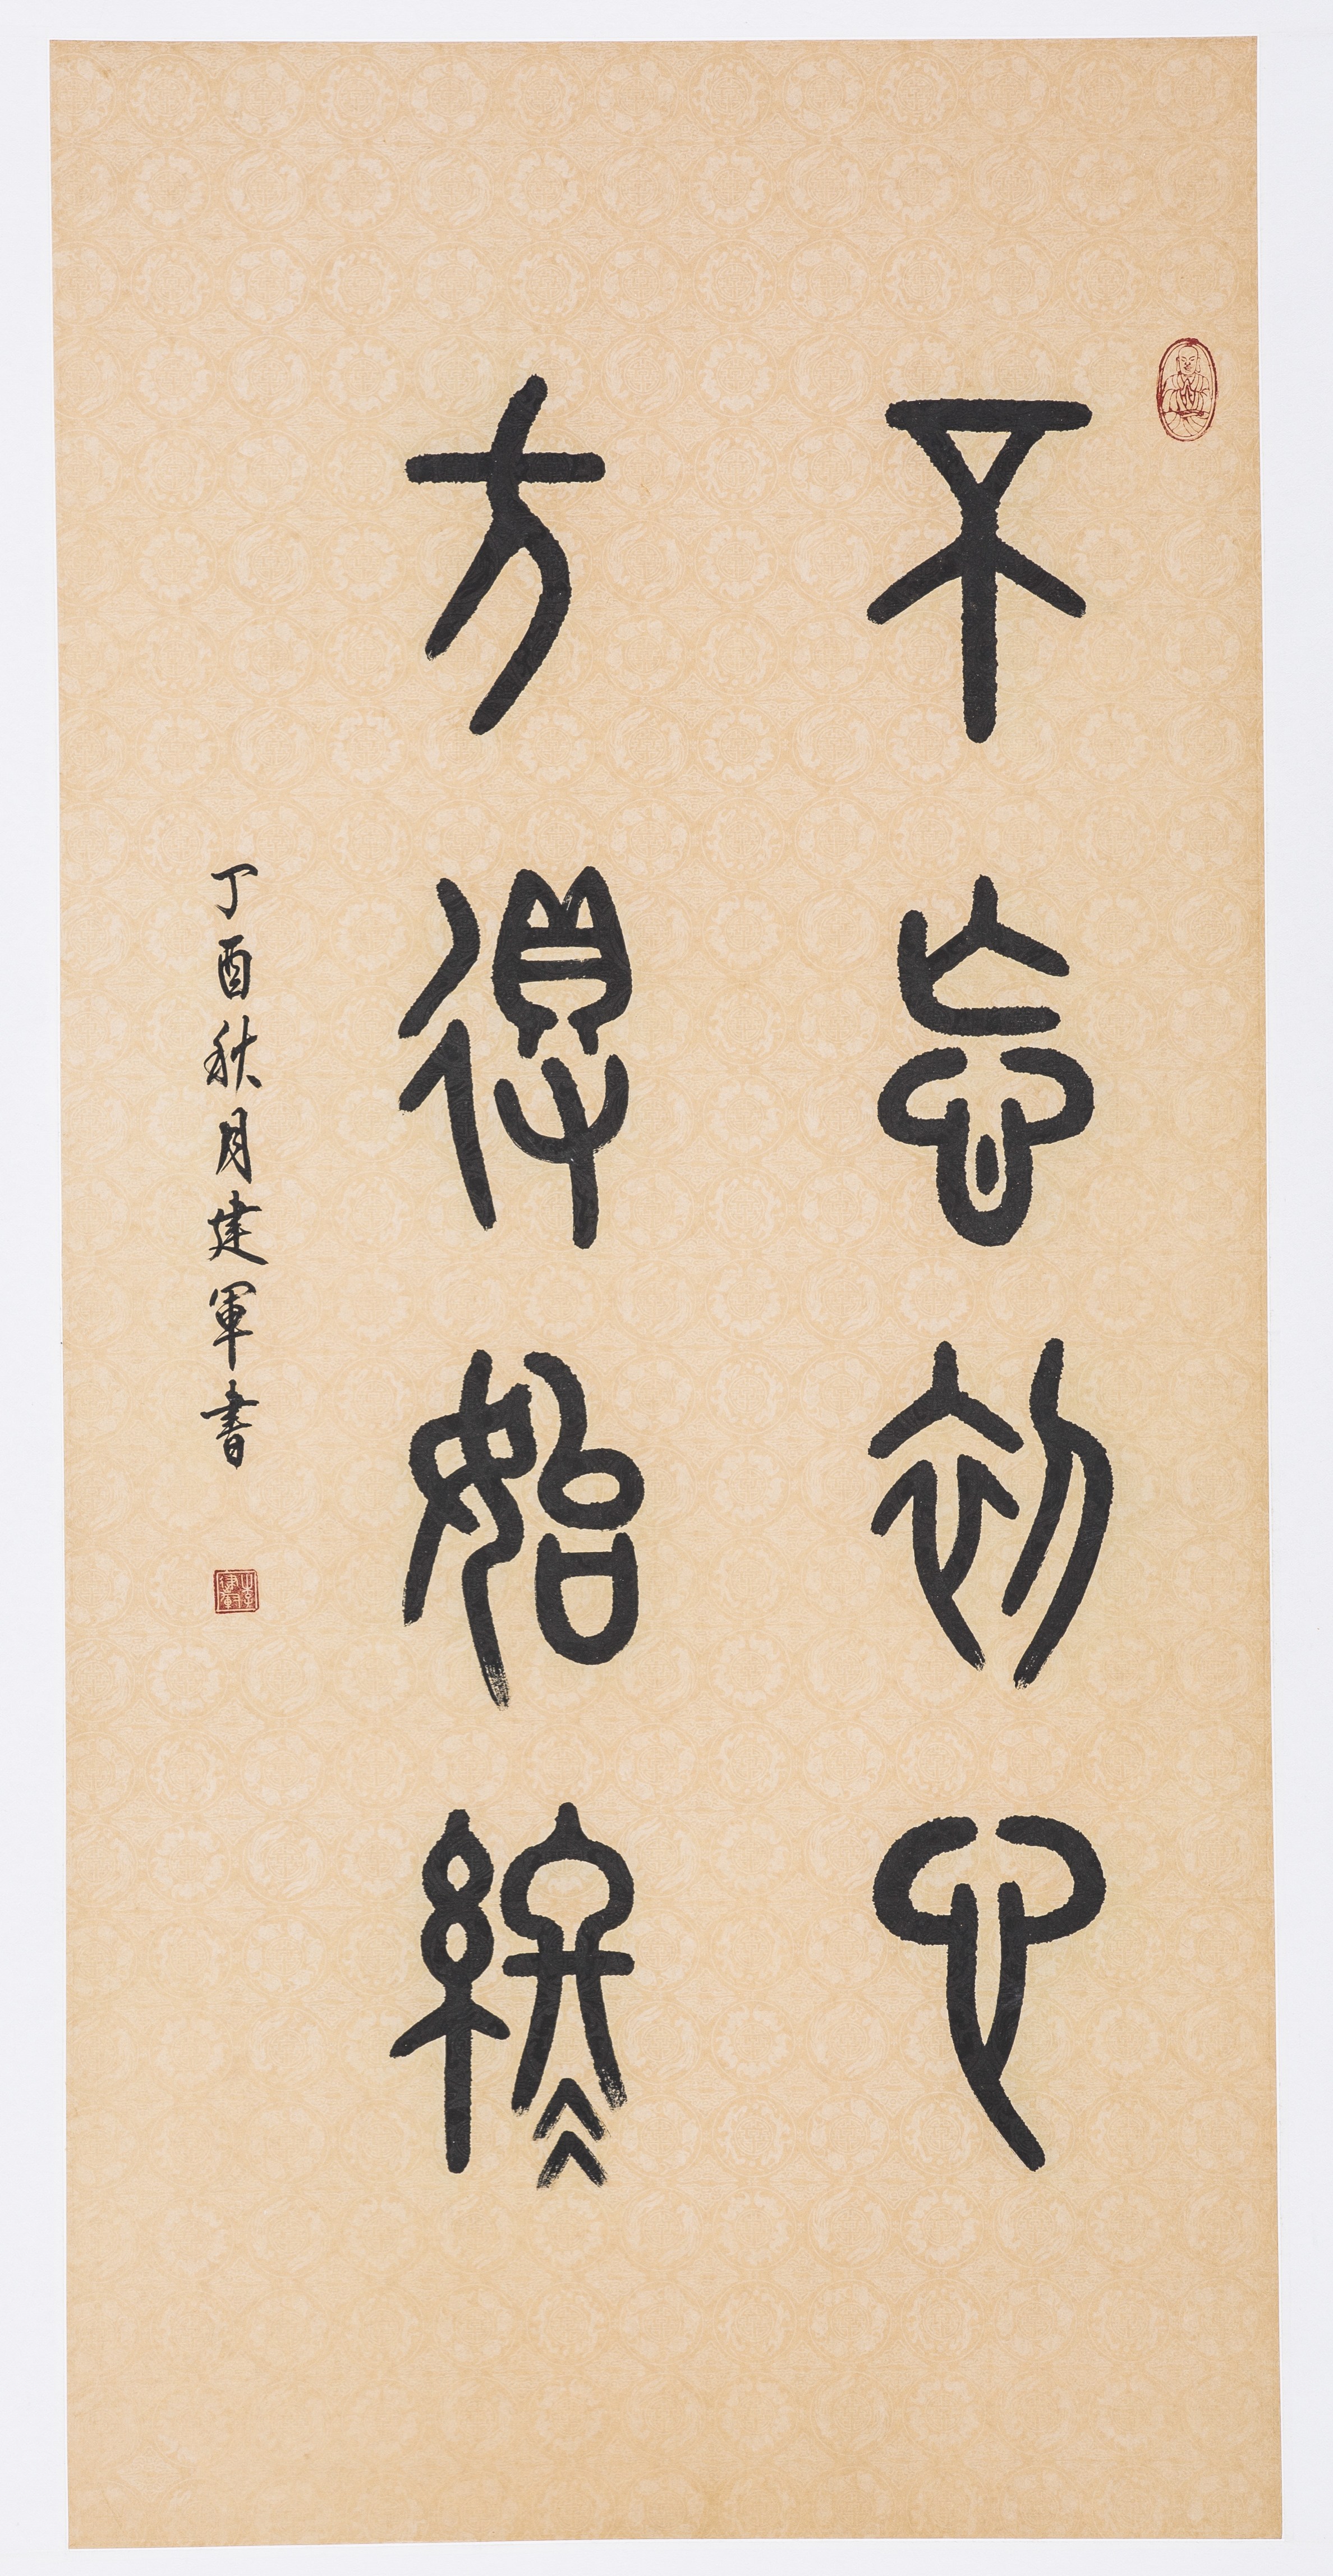 不忘初心
方得始終
丁酉秋月建軍書
李建軍